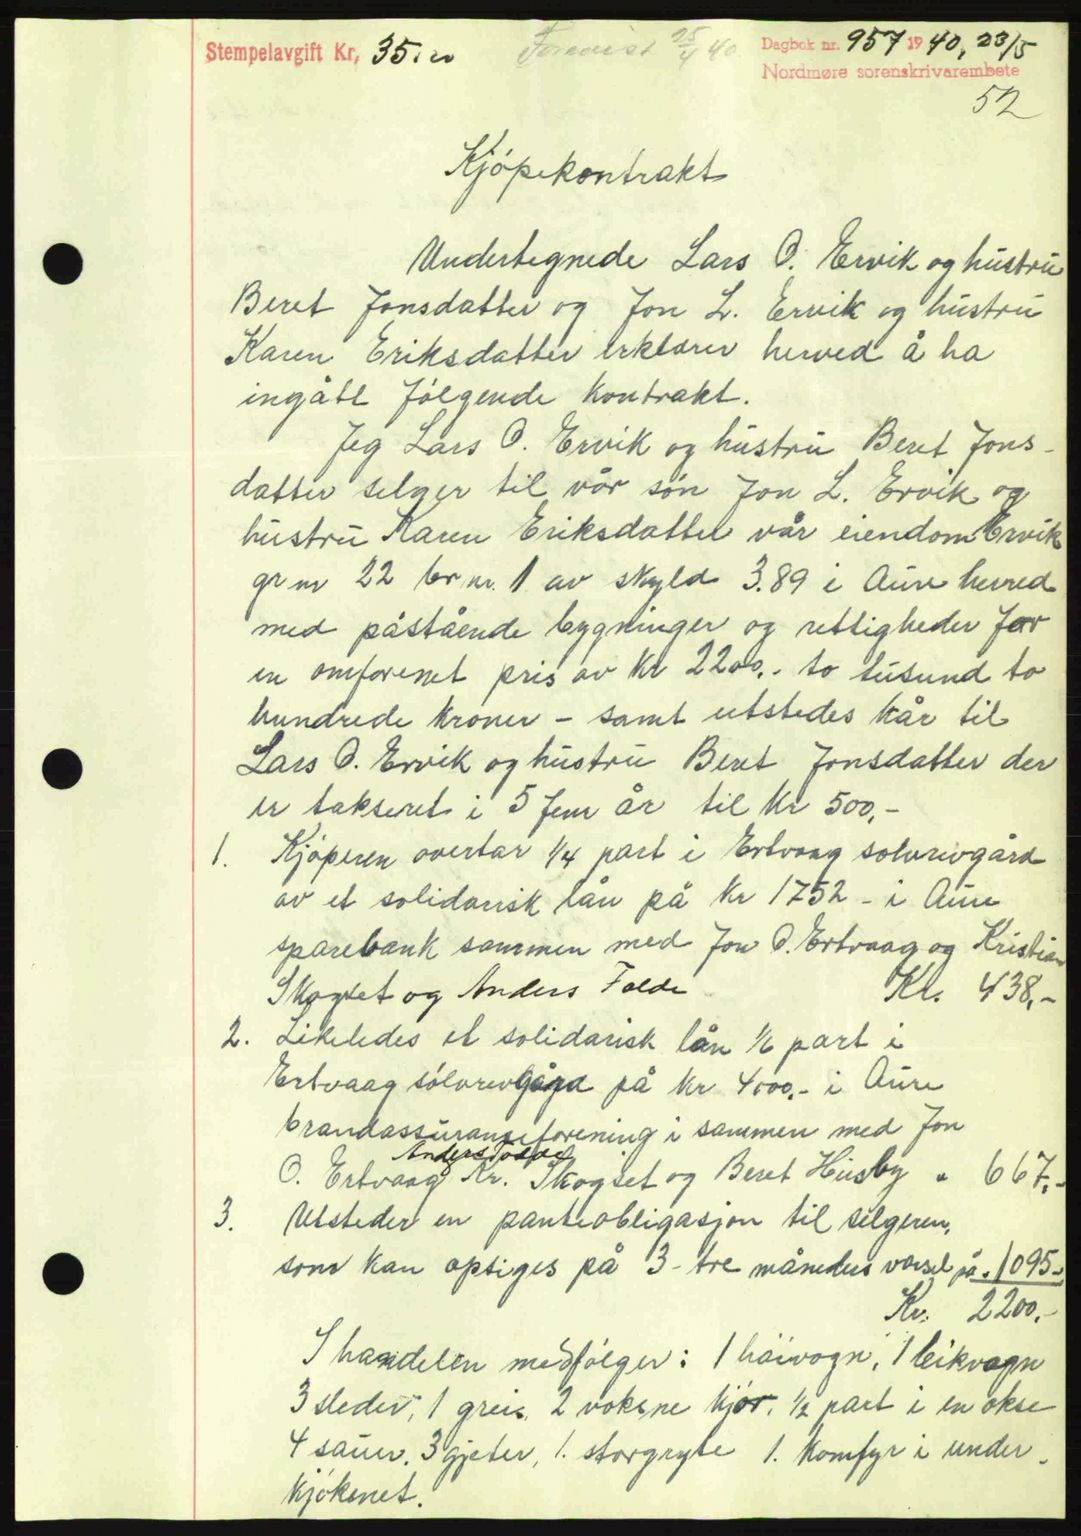 Stempelavgift Kr, 35,00 Forevist 25/4 40 Dagbok nr. 957 1940, 23/5
Nordmøre sorenskrivarembete
52
Kjøpekontrakt
Undertegnede Lars O. Ervik og hustru
Beret Jonsdatter og Jon L. Ervik og hustru
Karen Eriksdatter erklærer herved å ha
ingått følgende kontrakt.
Jeg Lars O. Ervik og hustru Beret Jons-
datter selger til vår søn Jon L. Ervik og
hustru Karen Eriksdatter vår eiendom Ervik
gr nr 22 br nr. 1 av skyld 3.89 i Aure herred
med påstående bygninger og rettigheder for
en omforenet pris av kr 2200,- to tusund to
hundrede kroner - samt utstedes kår til
Lars O. Ervik og hustru Beret Jonsdatter der
er takseret i 5 fem år til kr 500,-
1. Kjøperen overtar 1/4 part i Ertvaag sølvrevgård
av et solidarisk lån på kr 1752 - i Aure
sparebank sammen med Jon O. Ertvaag og Kristian
Skogset og Anders Folde Kr. 438,-
2. Likeledes et solidarisk lån 1/6 part i
Ertvaag sølvrevgård på kr 4000,- i Aure
brandassuranseforening i sammen med Jon
Anders Folde
O. Ertvaag Kr. Skogset og Beret Husby " 667,-
3. Utsteder en panteobligasjon til selgeren,
som kan opsiges på 3 - tre måneders varsel på " 1095,-
Kr. 2200,-
I handelen medfølger: 1 høivogn, 1 leikvogn
3 sleder, 1 greie, 2 voksne kjør, 1/2 part i en okse
4 sauer, 3 gjeter, 1. storgryte 1. komfyr i under-
kjøkenet.